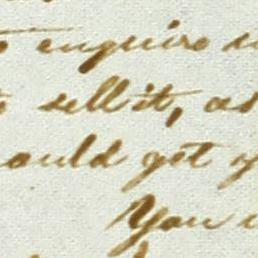 enquire
sell it, as
ould get y
You